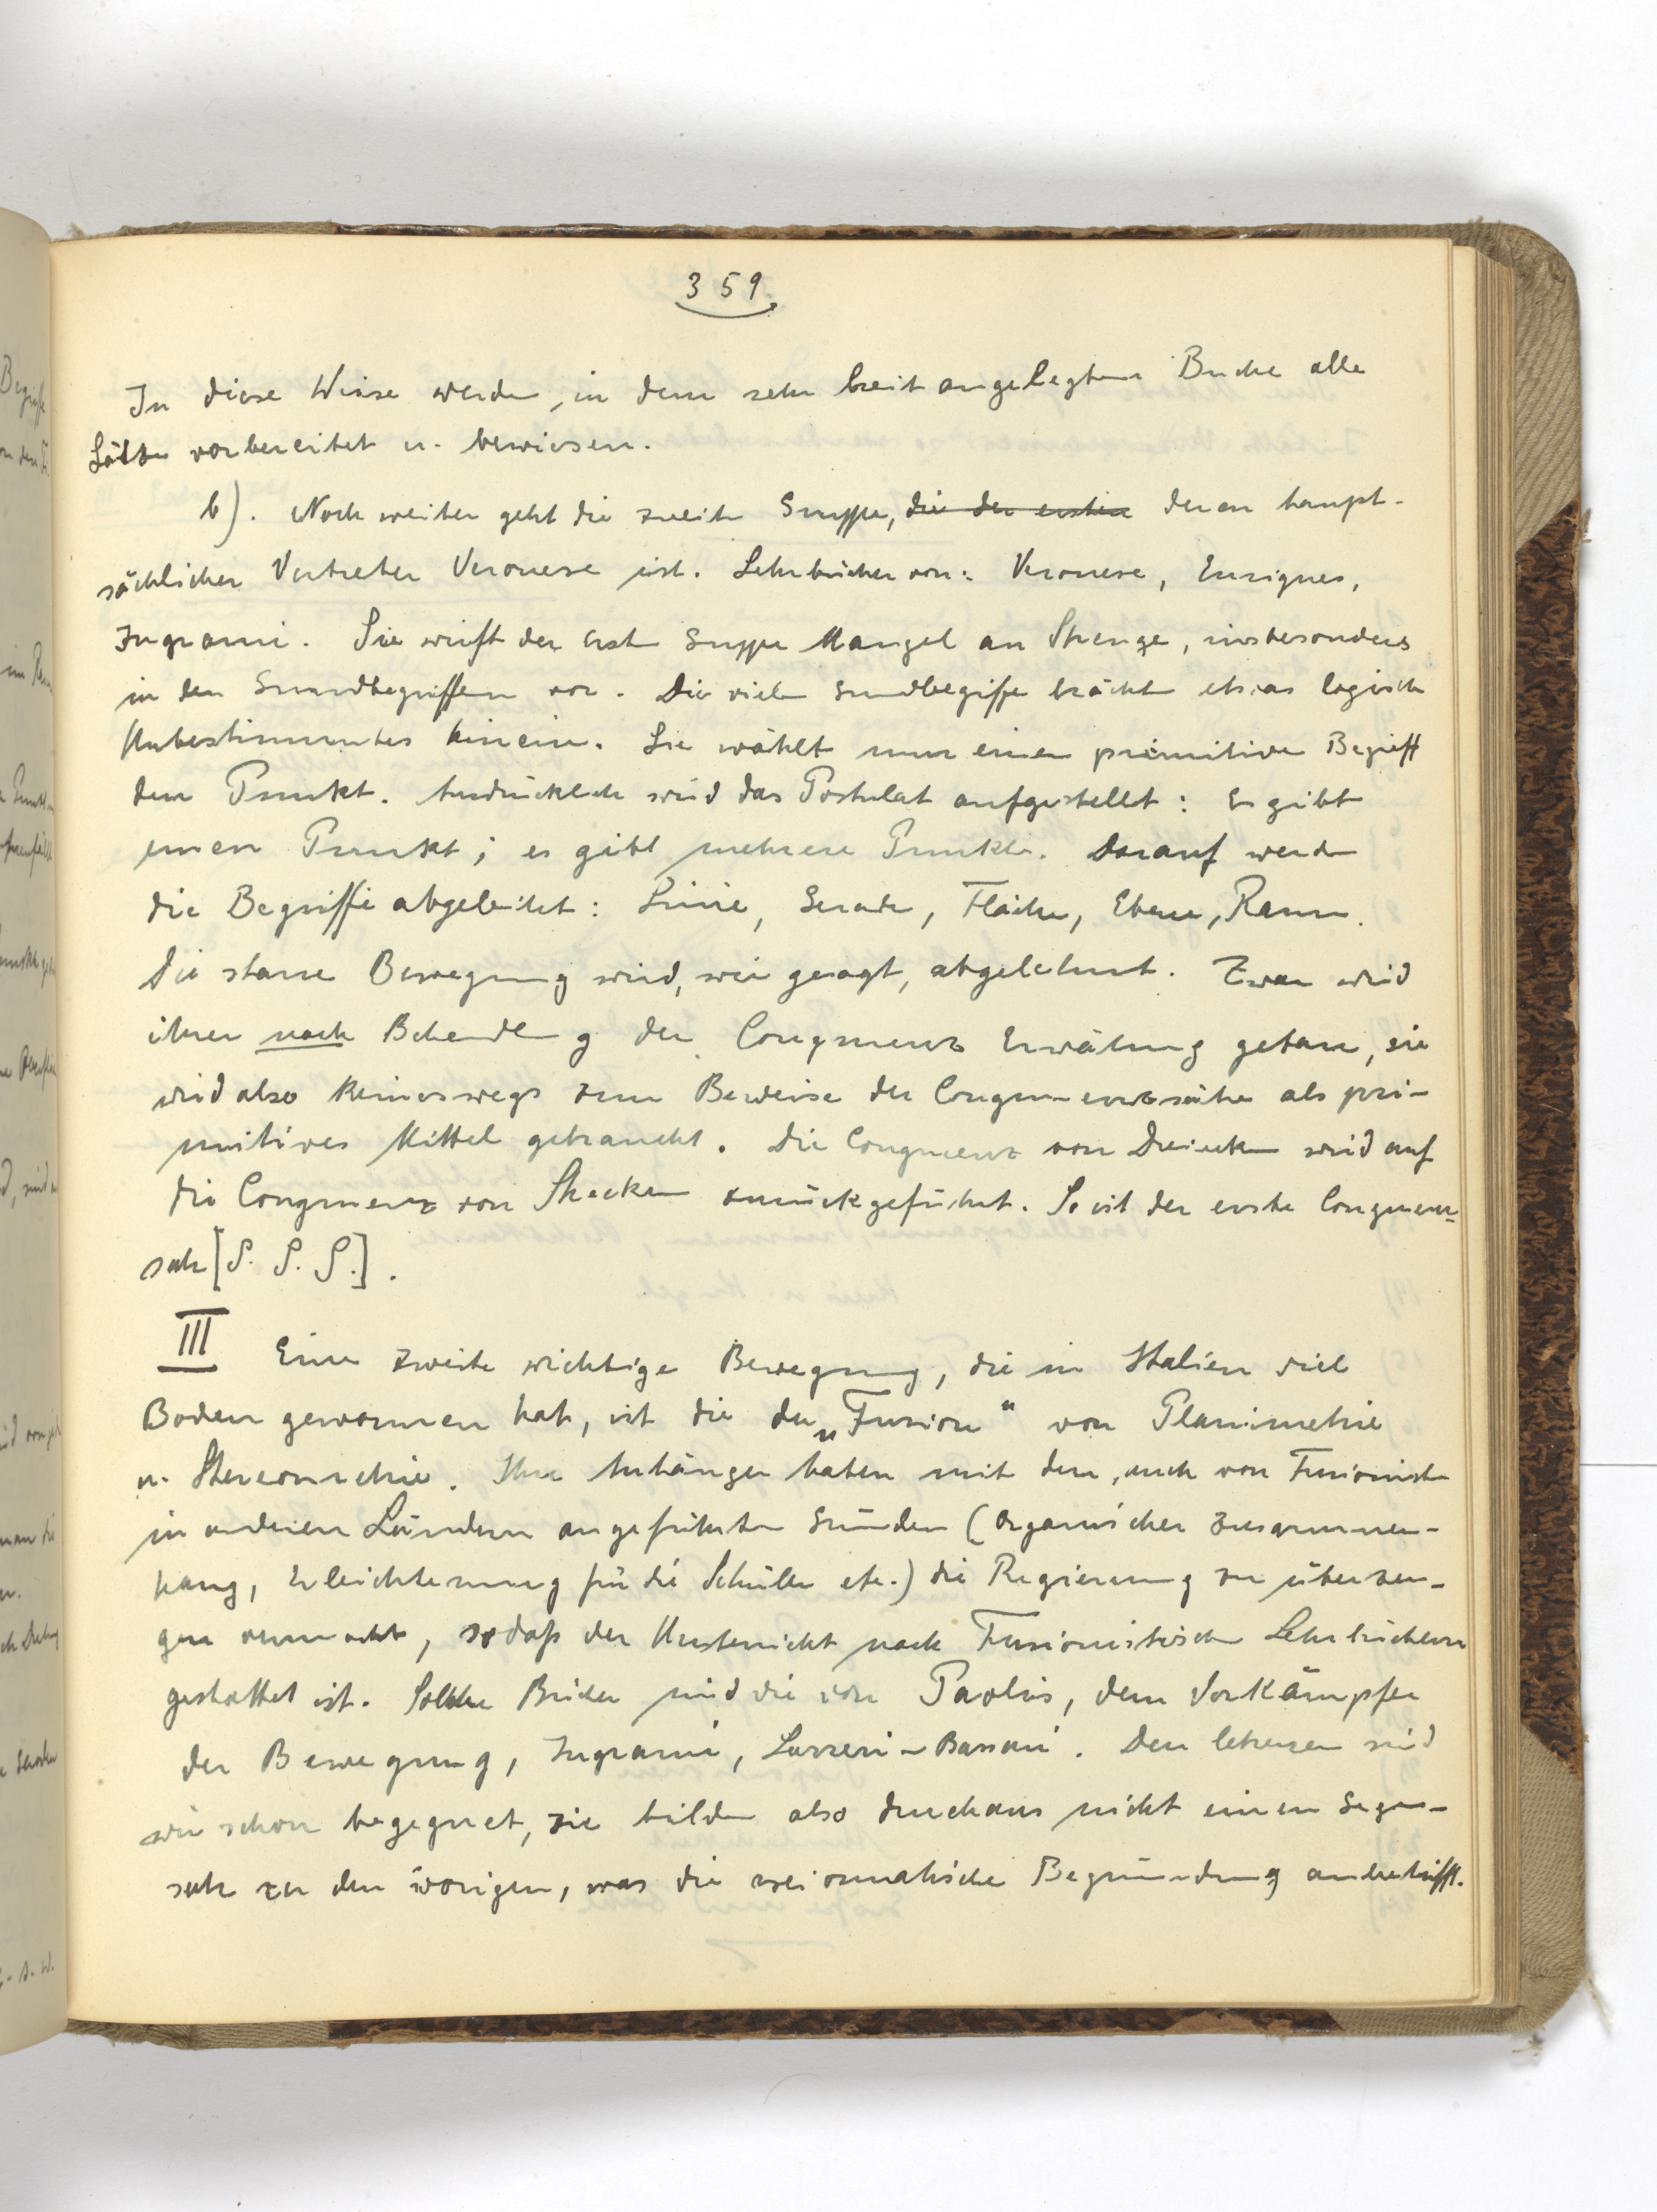 359
In diese Weise werden, in dem sehr breit angelegten Buche alle
Sätze vorbereitet u. bewiesen.
b). Noch weiter geht die zweite Gruppe, die der ersten deren haupt-
sächlicher Vertreter Veronese ist. Lehrbücher von: Veronese, Enriques,
Ingrami. Sie wirft der erst Gruppe Mangel an Strenge, insbesonders
in den Grundbegriffen vor. Die vielen Grundbegriffe brächten etwas logisch
Unbestimmtes hinein. Sie wählt nur einen primitiven Begriff
den Punkt. Ausdrücklich wird das Postulat aufgestellt: Es gibt
einen Punkt; es gibt mehrere Punkte. Darauf werden
die Begriffe abgeleitet: Linie, Gerade, Fläche, Ebene, Raum.
Die starre Bewegung wird, wie gesagt, abgelehnt. Zwar wird
ihrer nach Behandlung der Congruenz Erwähnung getan, sie
wird also keineswegs zum Beweise der Congruenzsätze als pri-
mitives Mittel gebraucht. Die Congruenz von Dreiecken wird auf
die Congruenz von Strecken zurückgeführt. So ist der erste Congruenz-
satz [S. S. S.].
III Eine zweite wichtige Bewegung, die in Italien viel
Boden gewonnen hat, ist die der „Fusion“ von Planimetrie
u. Stereometrie. Ihre Anhänger haben mit den, auch von Fusionisten
in anderen Ländern angeführten Gründen (Organischer Zusammen-
hang, Erleichterung für die Schüler etc.) die Regierung zu überzeu-
gen vermocht, sodaß der Unterricht nach Fusionistischen Lehrbüchern
gestattet ist. Solche Bücher sind die von Paolis, dem Vorkämpfer
der Bewegung, Ingrami, Lazzeri-Bassani. Den letzeren sind
wir schon begegnet, sie bilden also durchaus nicht einen Gegen-
satz zu den vorigen, was die axiomatische Begründung anbetrifft.